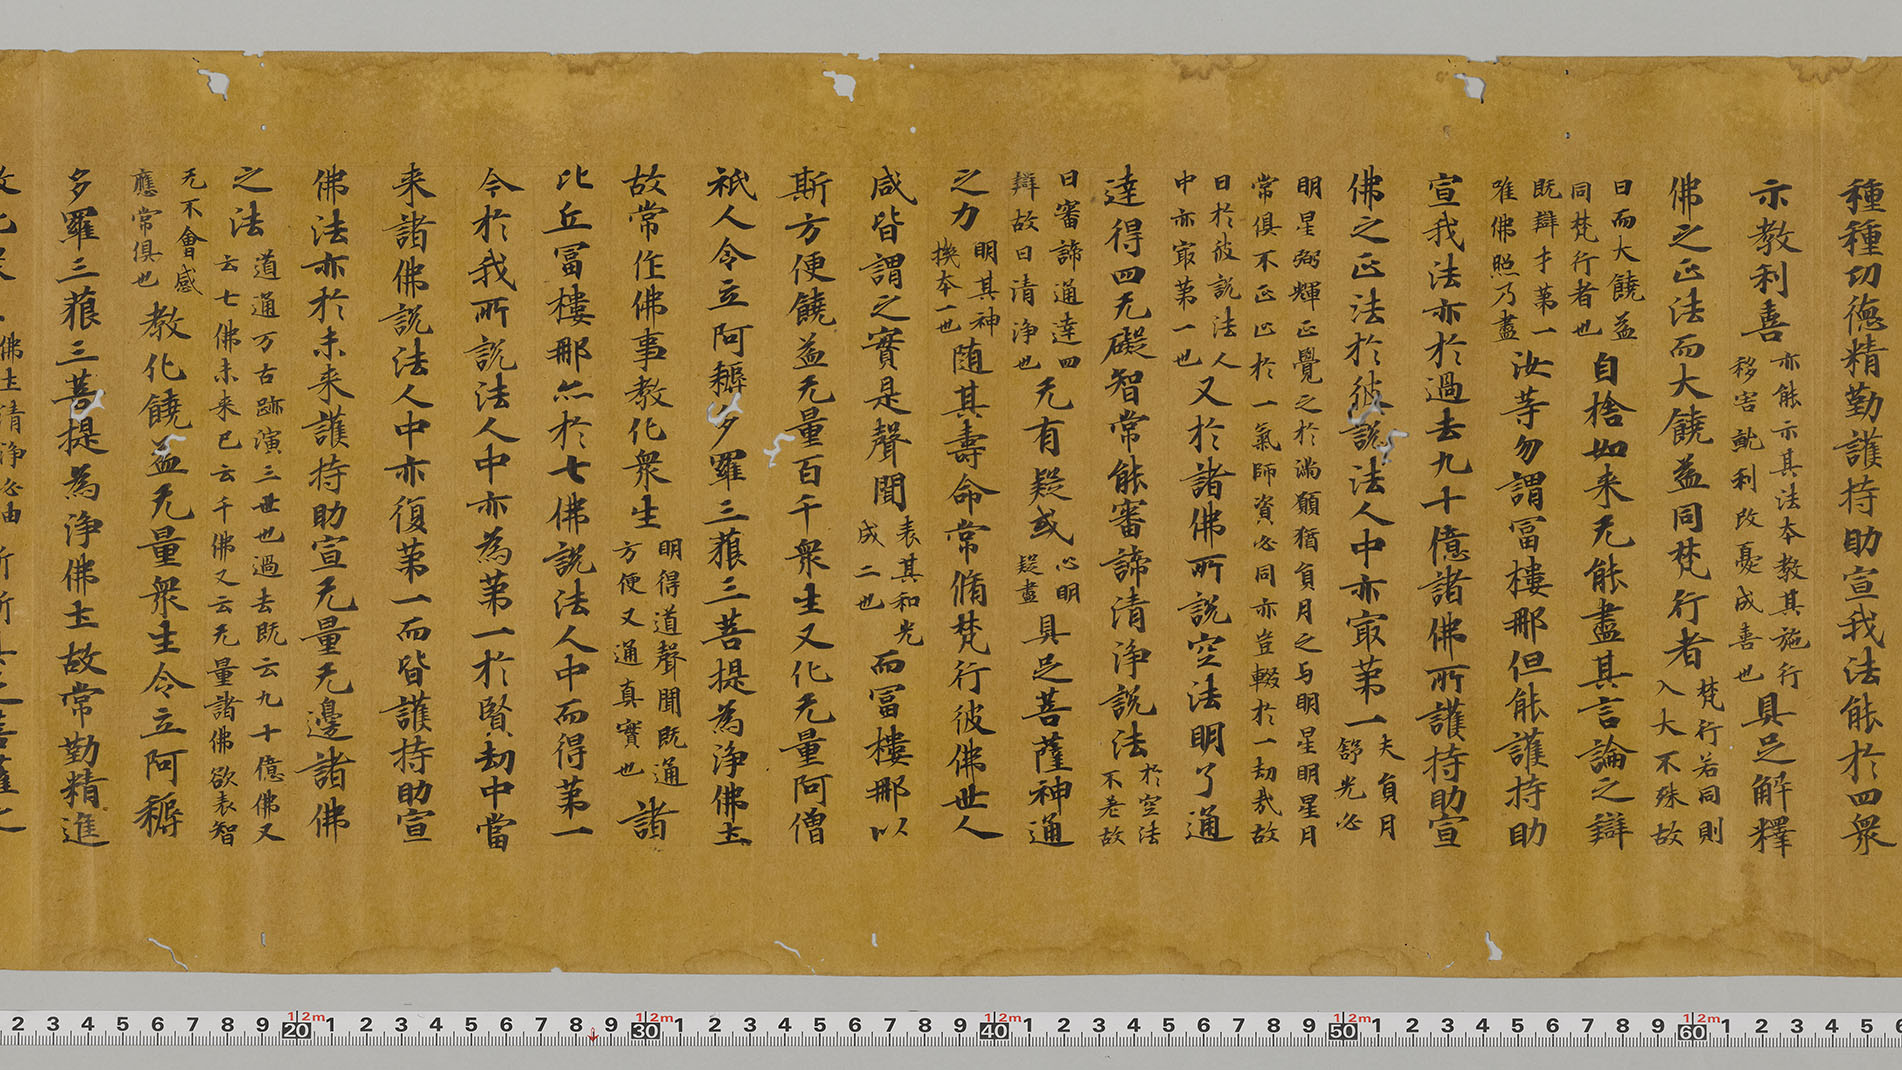 種種功德精勤護持助宣我法能於四衆
示教利喜亦能示其法本教其施行移害就利改憂成善也具足解釋
佛之正法而大饒益同梵行者梵行若同則入大不殊故
曰而大饒益同梵行者也自捨如来无能盡其言論之辯
既辯才第一唯佛照乃盡汝等勿謂冨樓那但能護持助
宣我法亦於過去九十億諸佛所護持助宣
佛之正法於彼說法人中亦㝡第一夫負月舒光必
明星弼輝正覺之於滿願猶負月之与明星明星月常俱不正正於一氣師資必同亦豈輟於一劫哉故
曰於彼說法人中亦㝡第一也又於諸佛所說空法明了通
達得四无礙智常能審諦清淨說法於空法不差故
曰審諦通達四辯故曰清淨也无有疑或心明疑盡具足菩薩神通
之力明其神機本一也随其壽命常脩梵行彼佛世人
咸皆謂之實是聲聞表其和光成二也而冨樓那以
斯方便饒益无量百千衆生又化无量阿僧
祇人令立阿耨多羅三藐三菩提為淨佛土
故常作佛事教化衆生明得道聲聞既通方便又通真實也諸
比丘冨樓那亦於七佛說法人中而得第一
今於我所說法人中亦為第一於賢劫中當
来諸佛說法人中亦復第一而皆護持助宣
佛法亦於未来護持助宣无量无邊諸佛
之法道通万古跡演三世也過去既云九十億佛又云七佛未来已云千佛又云无量諸佛欲表智
无不會感應常俱也教化饒益无量衆生令立阿耨
多羅三藐三菩提為淨佛土故常勤精進